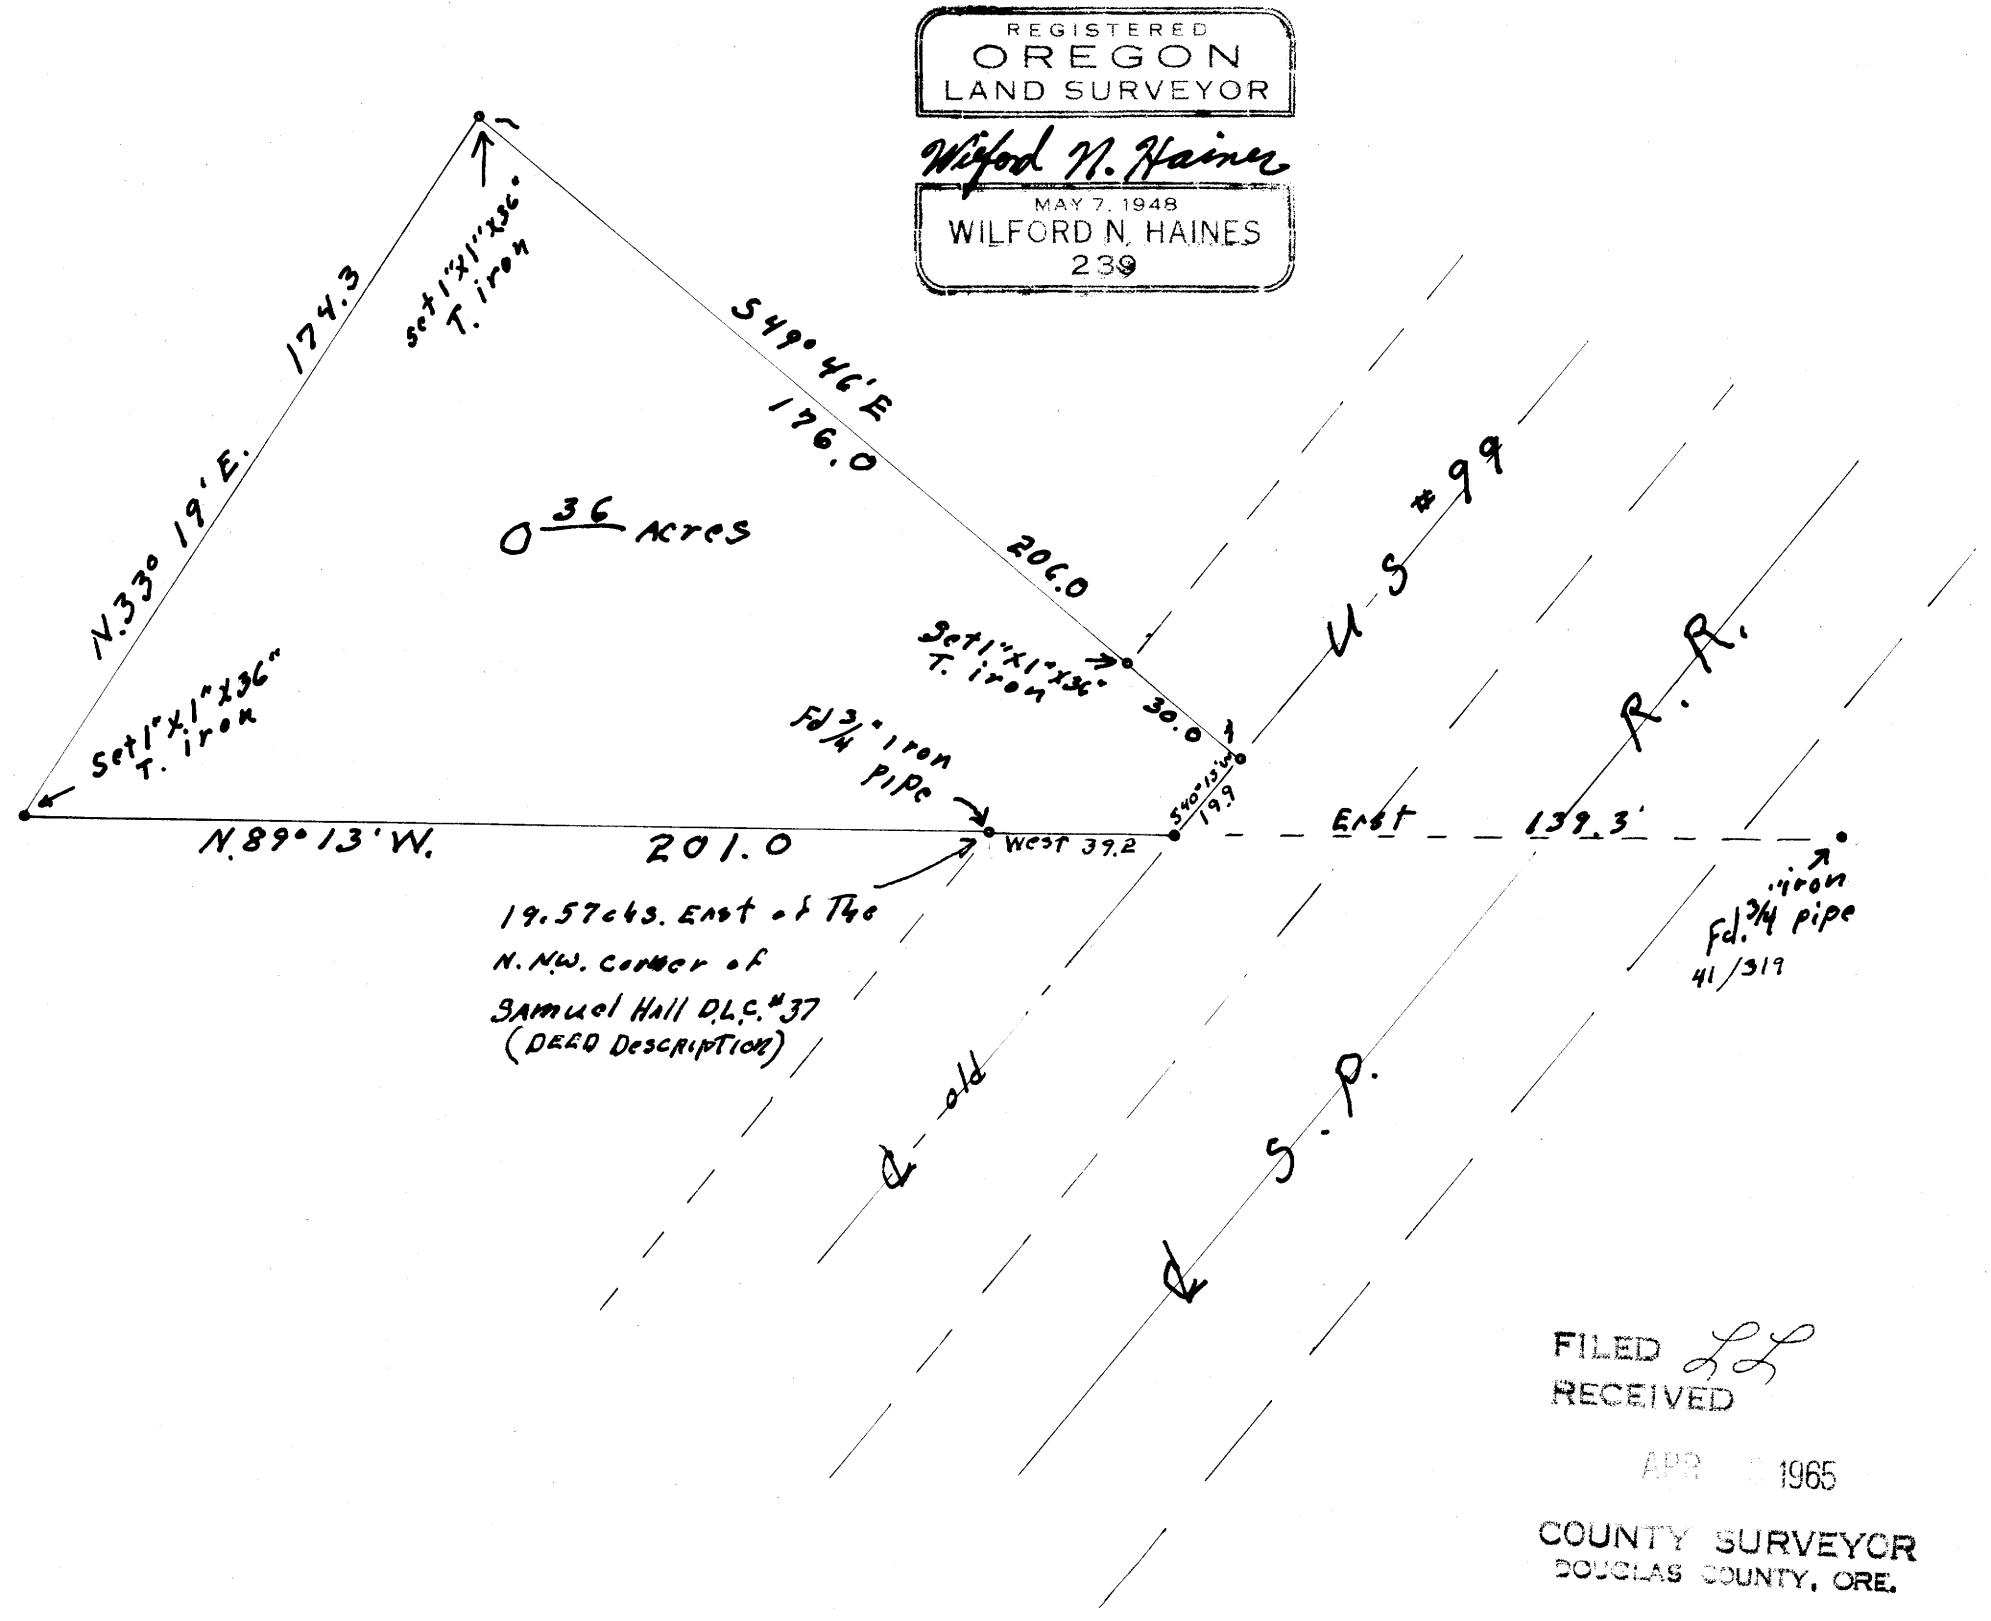 REGISTERED
OREGON
LAND SURVEYOR
Wilford N. Haines
MAY 7, 1948
WILFORD N. HAINES
239
174.3
N.33° 19' E.
set 1"x1"x36"
T. iron
S 49° 46' E
176.0
206.0
0 36 Acres
US #99
R. R.
Set 1"x1"x36"
T. iron
30.0
Set 1"x1"x36"
T. iron
Fd 3/4" iron
pipe
S40°13'W
19.9
N.89°13'W.
201.0
West 39.2
East 139.3'
19.57 chs. East of The
N. N.W. Corner of
Samuel Hall D.L.C. #37
(DEED Description)
iron
Fd. 3/4" pipe
41/319
℄ old
℄ S. P.
FILED LL
RECEIVED
APR 1965
COUNTY SURVEYOR
DOUGLAS COUNTY, ORE.